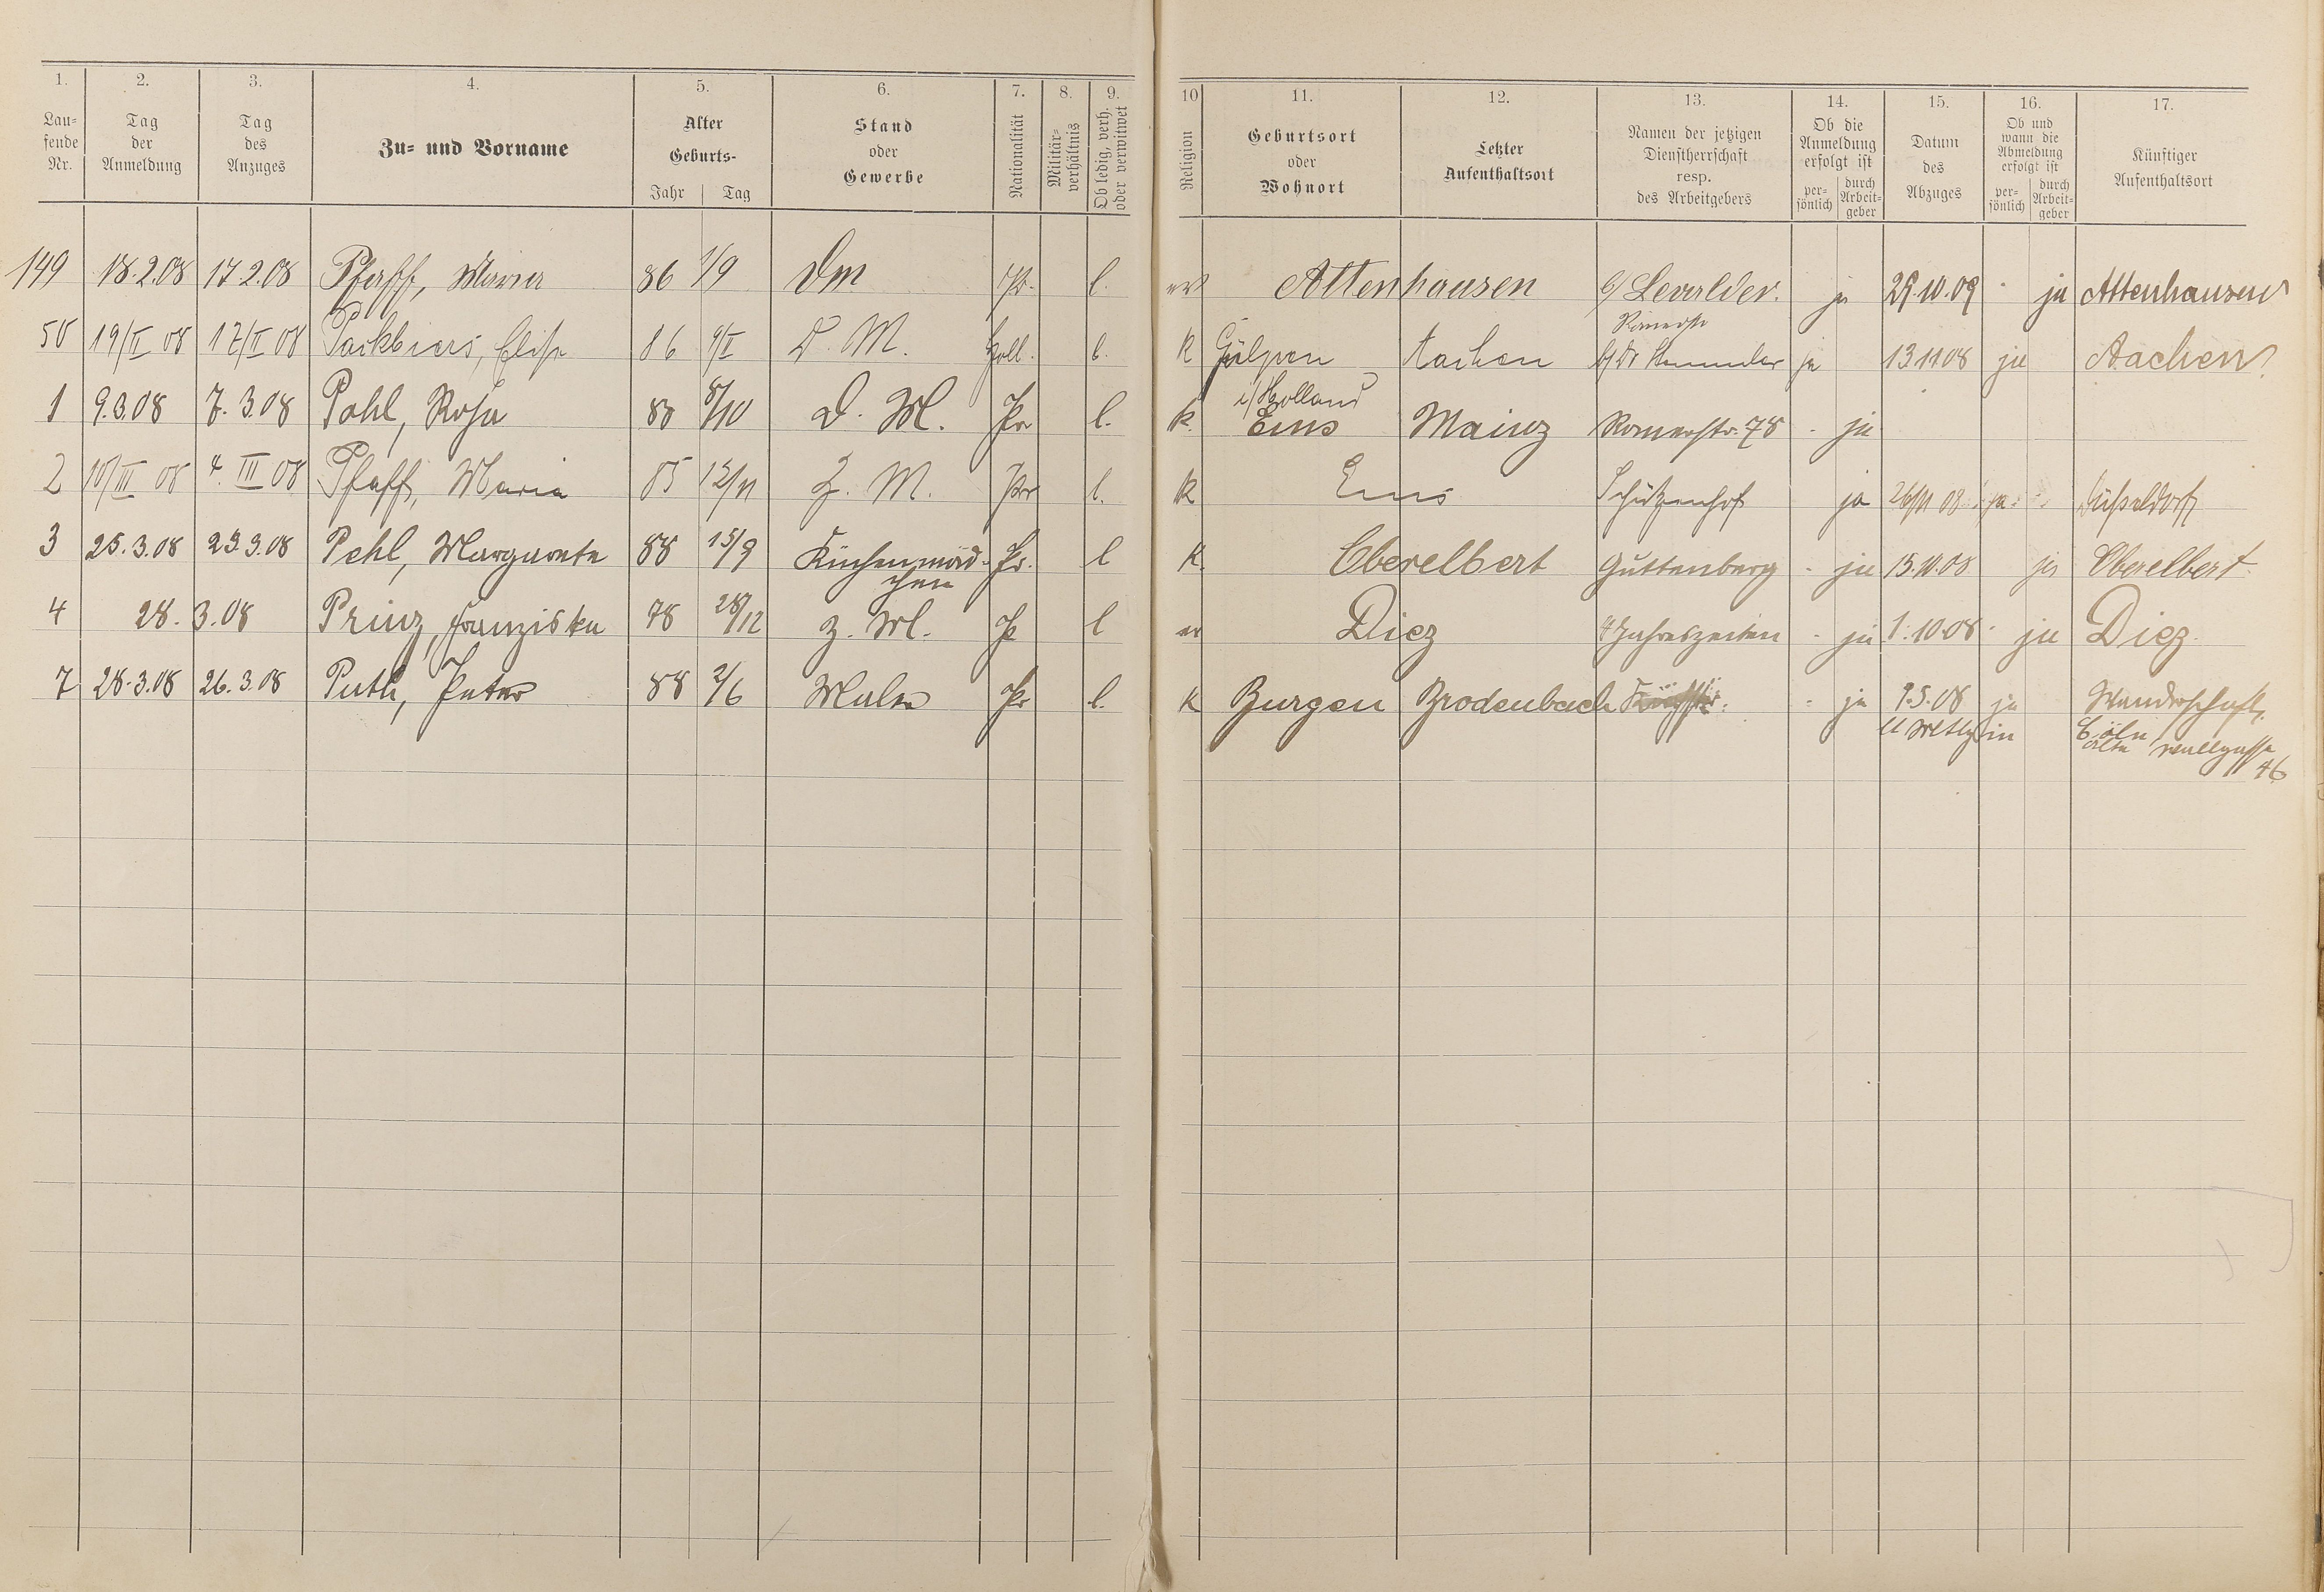 1. 2. 3. 4. 5. 6. 7. 8. 9. 10 11. 12. 13. 14. 15. 16. 17.
Lau-
fende
Nr.
Tag
der
Anmeldung
Tag
des
Anzuges
Zu- und Vorname
Alter
Geburts-
Jahr | Tag
Stand
oder
Gewerbe
Nationalität
Militär-
verhältnis
Ob ledig, verh.
oder verwitwet
Religion
Geburtsort
oder
Wohnort
Letzter
Aufenthaltsort
Namen der jetzigen
Dienstherrschaft
resp.
des Arbeitgebers
Ob die
Anmeldung
erfolgt ist
per-
sönlich
durch
Arbeit-
geber
Datum
des
Abzuges
Ob und
wann die
Abmeldung
erfolgt ist
per-
sönlich
durch
Arbeit-
geber
Künftiger
Aufenthaltsort
149 18.2.08 17.2.08 Pfaff, Maria 86 1/9 Dm Pr. l. ev Attenhausen b/ Levalder. ja 29.10.09 - ja Attenhausen
50 19/II 08 17/II 08 Packbiers, Elise 86 9/II D. M. Holl. l. K Gülpen Aachen Römerstr b/ Dr ja 13.11.08 ja Aachen
i/Holland
1 9.3.08 7.3.08 Pohl, Rosa 88 8/10 D. M. Pr l. K. Ems Mainz Römerstr. 78 - ja
2 10/III 08 4. III 08 Pfaff, Maria 85 12/11 Z. M. Pr l. K Ems Schützenhof ja 26/11 08 ja. Düsseldorf
3 25.3.08 23.3.08 Pehl, Margarete 88 15/9 Küchenmäd- Pr. l K. Oberelbert Guttenberg - ja 15.10.08 ja Oberelbert
chen
4 28.3.08 Prinz, Franziska 78 28/12 Z. M. Pr l ev Diez 4 Jahreszeiten - ja 1.10.08 - ja Diez
7 28.3.08 26.3.08 Puth, Peter 88 2/6 Maler Pr l. K Burgen Brodenbach - ja 9.5.08 ja Wanderschaft.
in Cöln
46